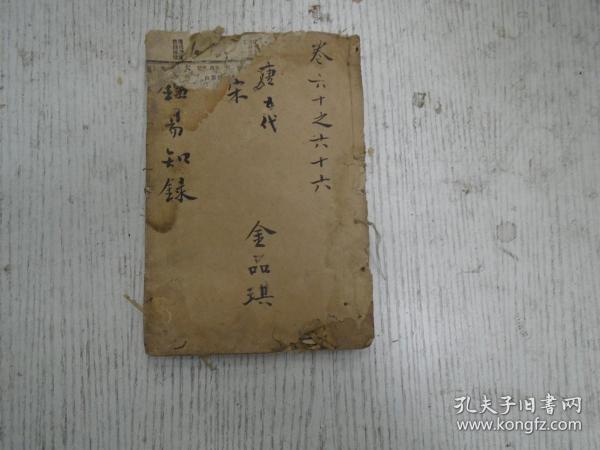 卷六十之六十六
唐五代
宋
金品琪
易知録
孔夫子旧书网
www.kongfz.com